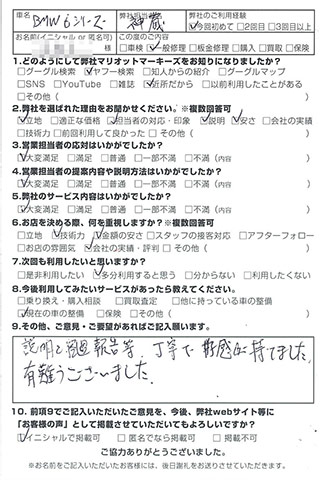 車名 BMW 6シリーズ 弊社担当者 弊社のご利用経験
☑今回初めて □2回目 □3回目以上
お名前(イニシャル or 匿名可) この度のご内容
□車検 ☑一般修理 □板金修理 □購入 □買取 □保険
1.どのようにして弊社マリオットマーキーズをお知りになりましたか?
□グーグル検索 ☑ヤフー検索 □知人からの紹介 □グーグルマップ
□SNS □YouTube □雑誌 ☑近所だから □以前利用したことがある
□その他( )
2.弊社を選ばれた理由をお聞かせください。※複数回答可
☑立地 □適正な価格 ☑担当者の対応・印象 ☑説明 ☑安さ □会社の実績
□技術力 □前回利用して良かった □その他( )
3.営業担当者の応対はいかがでしたか?
☑大変満足 □満足 □普通 □一部不満 □不満(内容 )
4.営業担当者の提案内容や説明方法はいかがでしたか?
☑大変満足 □満足 □普通 □一部不満 □不満(内容 )
5.弊社のサービス内容はいかがでしたか?
☑大変満足 □満足 □普通 □一部不満 □不満(内容 )
6.お店を決める際、何を重視しますか?※複数回答可
□立地 ☑技術力 ☑金額の安さ □スタッフの接客対応 □アフターフォロー
□お店の雰囲気 ☑会社の実績・評判 □その他( )
7.次回も利用したいと思いますか?
□是非利用したい ☑多分利用すると思う □分からない □利用したくない
8.今後利用してみたいサービスがあったら教えてください。
□乗り換え・購入相談 □買取査定 □他に持っている車の整備
☑現在の車の整備 □保険 □その他( )
9.その他、ご意見・ご要望があればご記入願います。
説明と経過報告等、丁寧で好感が持てました。
有難うございました。
10.前項9でご記入いただいたご意見を、今後、弊社webサイト等に
「お客様の声」として掲載させていただいてもよろしいですか?
☑イニシャルで掲載可 □匿名でなら掲載可 □掲載不可
ご協力ありがとうございました。
※お名前をご記入いただいたお客様には、後日謝礼をお送りさせていただきます。